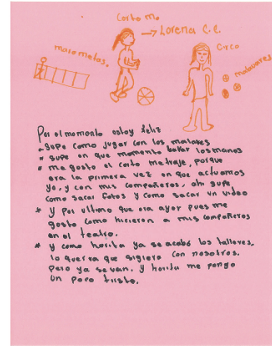 Corto M.
→ Lorena C. C.
marometas.
Circo
malavares
Por el momento estoy feliz
* Supe como jugar con los malaves
* supe en que momento bater los manos
* me gusto el corto metraje, porque
era la primera vez en que actuamos
yo, y con mis compañeros, ah supe
como sacar fotos y como sacar un video
* y por ultimo que era ayor pues me
gusto como hicieron a mis compañeros
en el teatro.
* y como horita ya se acabó los talleres,
lo querea que sigiera con nosotros,
pero ya se van, y horita me pongo
un poco triste.